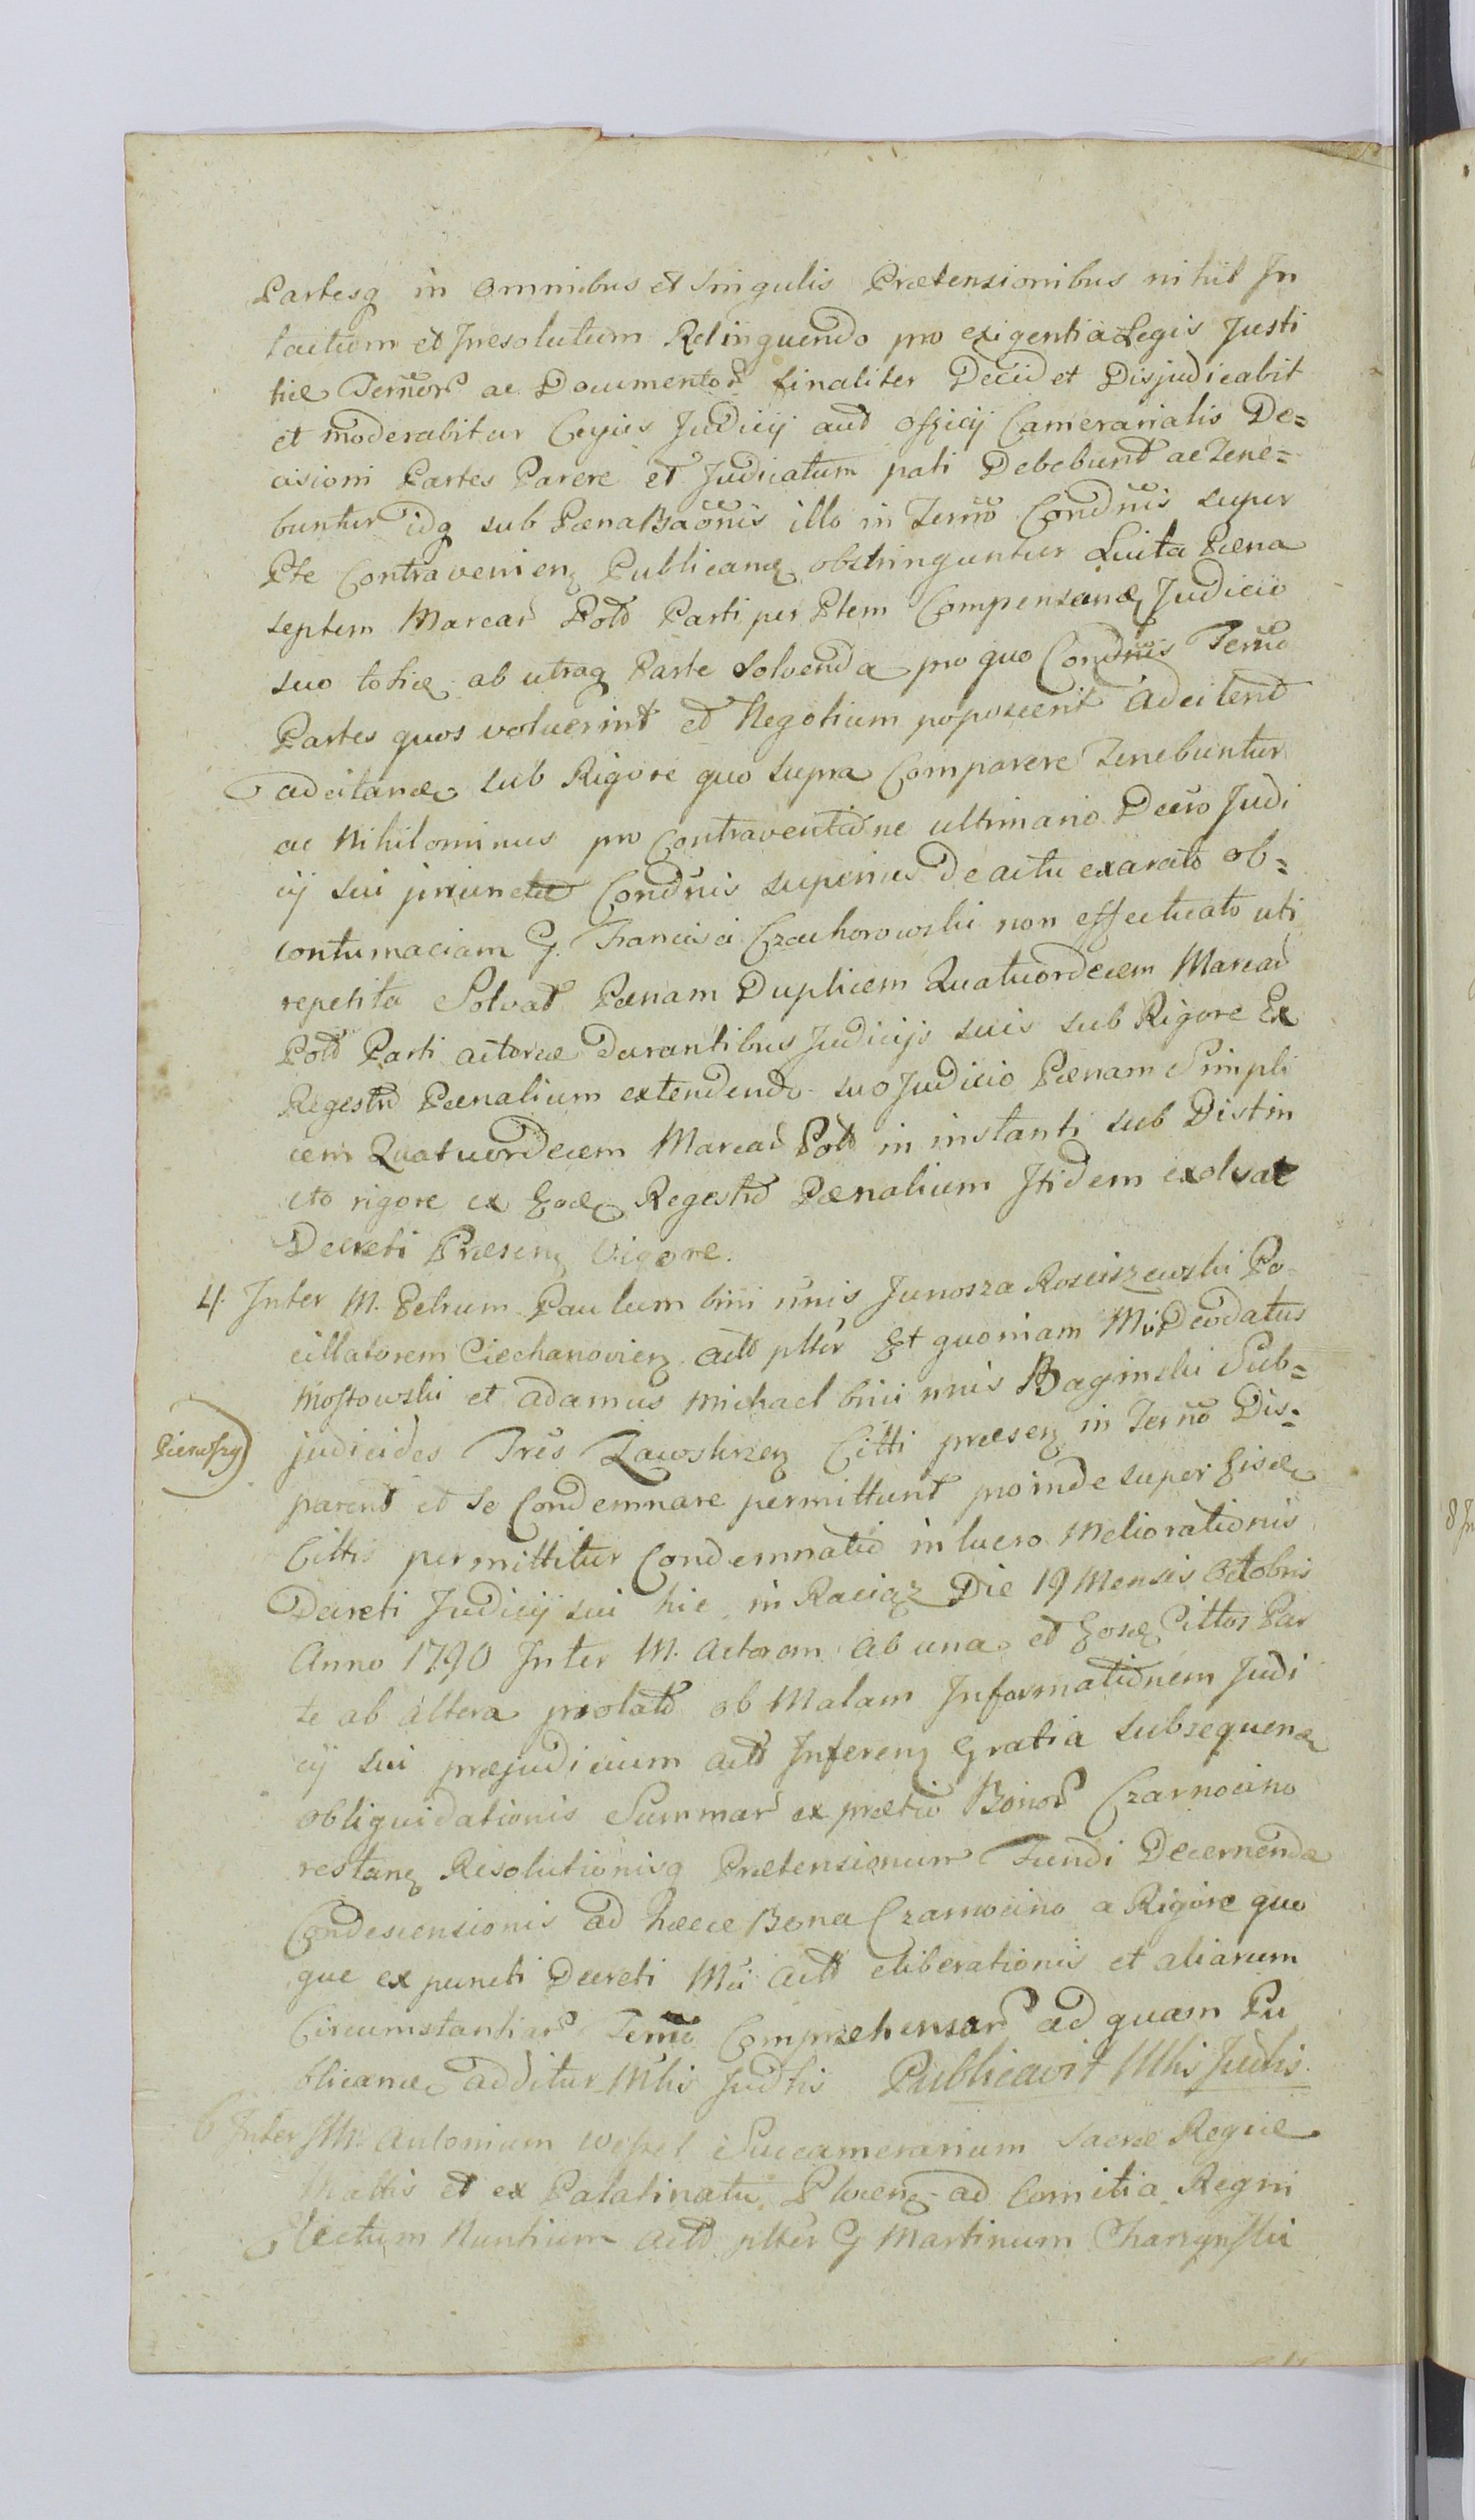 Partesq in Omnibus et Singulis Prætensionibus nihil In
tactum et Iresolutum Relinquendo pro exigentia Legis Justi
tiæ Termor ac Documentor finaliter Decid et Disjudicabit
et moderabitur Cujus Judicij aut Officij Camerarialis De=
cisioni Partes Parere et Judicatum pati Debebunt ac Tene=
buntur idq sub Pæna Baonis illo in Termo Condnis super
Pte Contravenien Publicanæ obstringuntur Luita Pæna
septem Marcar Pold Parti per Ptem Compensanæ Judicio
suo totiæ ab utraq Parte Solvenda pro quo Condnis Termo
Partes quos voluerint et Negotium poposcerit adcitent
adcitanæ sub Rigore quo supra Comparere Tenebuntur
ac Nihilominus pro Contraventione ultimario Decro Judi
cij sui injunctæ Condnis superius De actu exarato ob=
contumaciam G. Francisci Czachorowski non effectuato uti
repetita Solvat Pænam Duplicem Quatuordecem Marcar
Pold Parti actoreæ Durantibus Judicijs suis sub Rigore Ex
Regestro Pænalium extendendo suo Judicio Pænam Simpli
cem Quatuordecem Marcar Pold in instanti sub Distin
cto rigore ex Eodæ Regestro Pænalium Itidem exolvat
Decreti Præsen Vigore.
4. Inter M. Petrum Paulum bini nnis Junosza Rosciszewski Po
cillatorem Ciechanovien actd ptter Et quoniam M. Deodatus
Mostowski et Adamus Michael bini nnis Baginski Sub=
Pierwszy) judicides Tres Zawskrzen Citti præsen in Termo Dis=
parent et se Condemnare permittunt proinde super Eisdæ
Cittis permittitur Condemnatio in lucro Meliorationis
Decreti Judicij sui hic in Raciąz Die 19 Mensis Octobris
Anno 1790 Inter M. Actorem ab una et Eosdæ Cittos Par
te ab altera prolato ob Malam Informationem Judi
cij sui præjudicium actd Inferen Gratia subsequenæ
obliquidationis Summar ex prætio Bonor Czarnocino
restanæ Resolutionisq Prætensionum Fundi Decernendæ
Condescensionis ad hæcce Bona Czarnocino a Rigore quo
que ex puncti Decreti Mci actd eliberationis et aliarum
Circumstantiar Termo Comprehensar ad quam Pu
blicanæ additur Mtlis Judlis Publicavit Mtlis Judlis
6 Inter M. Antonium Wessel Succamerarium Sacræ Regiæ
Mattis et ex Palatinatu Plocen ad Comitia Regni
Electum Nuntium Actd ptter G Martinum Charzynski